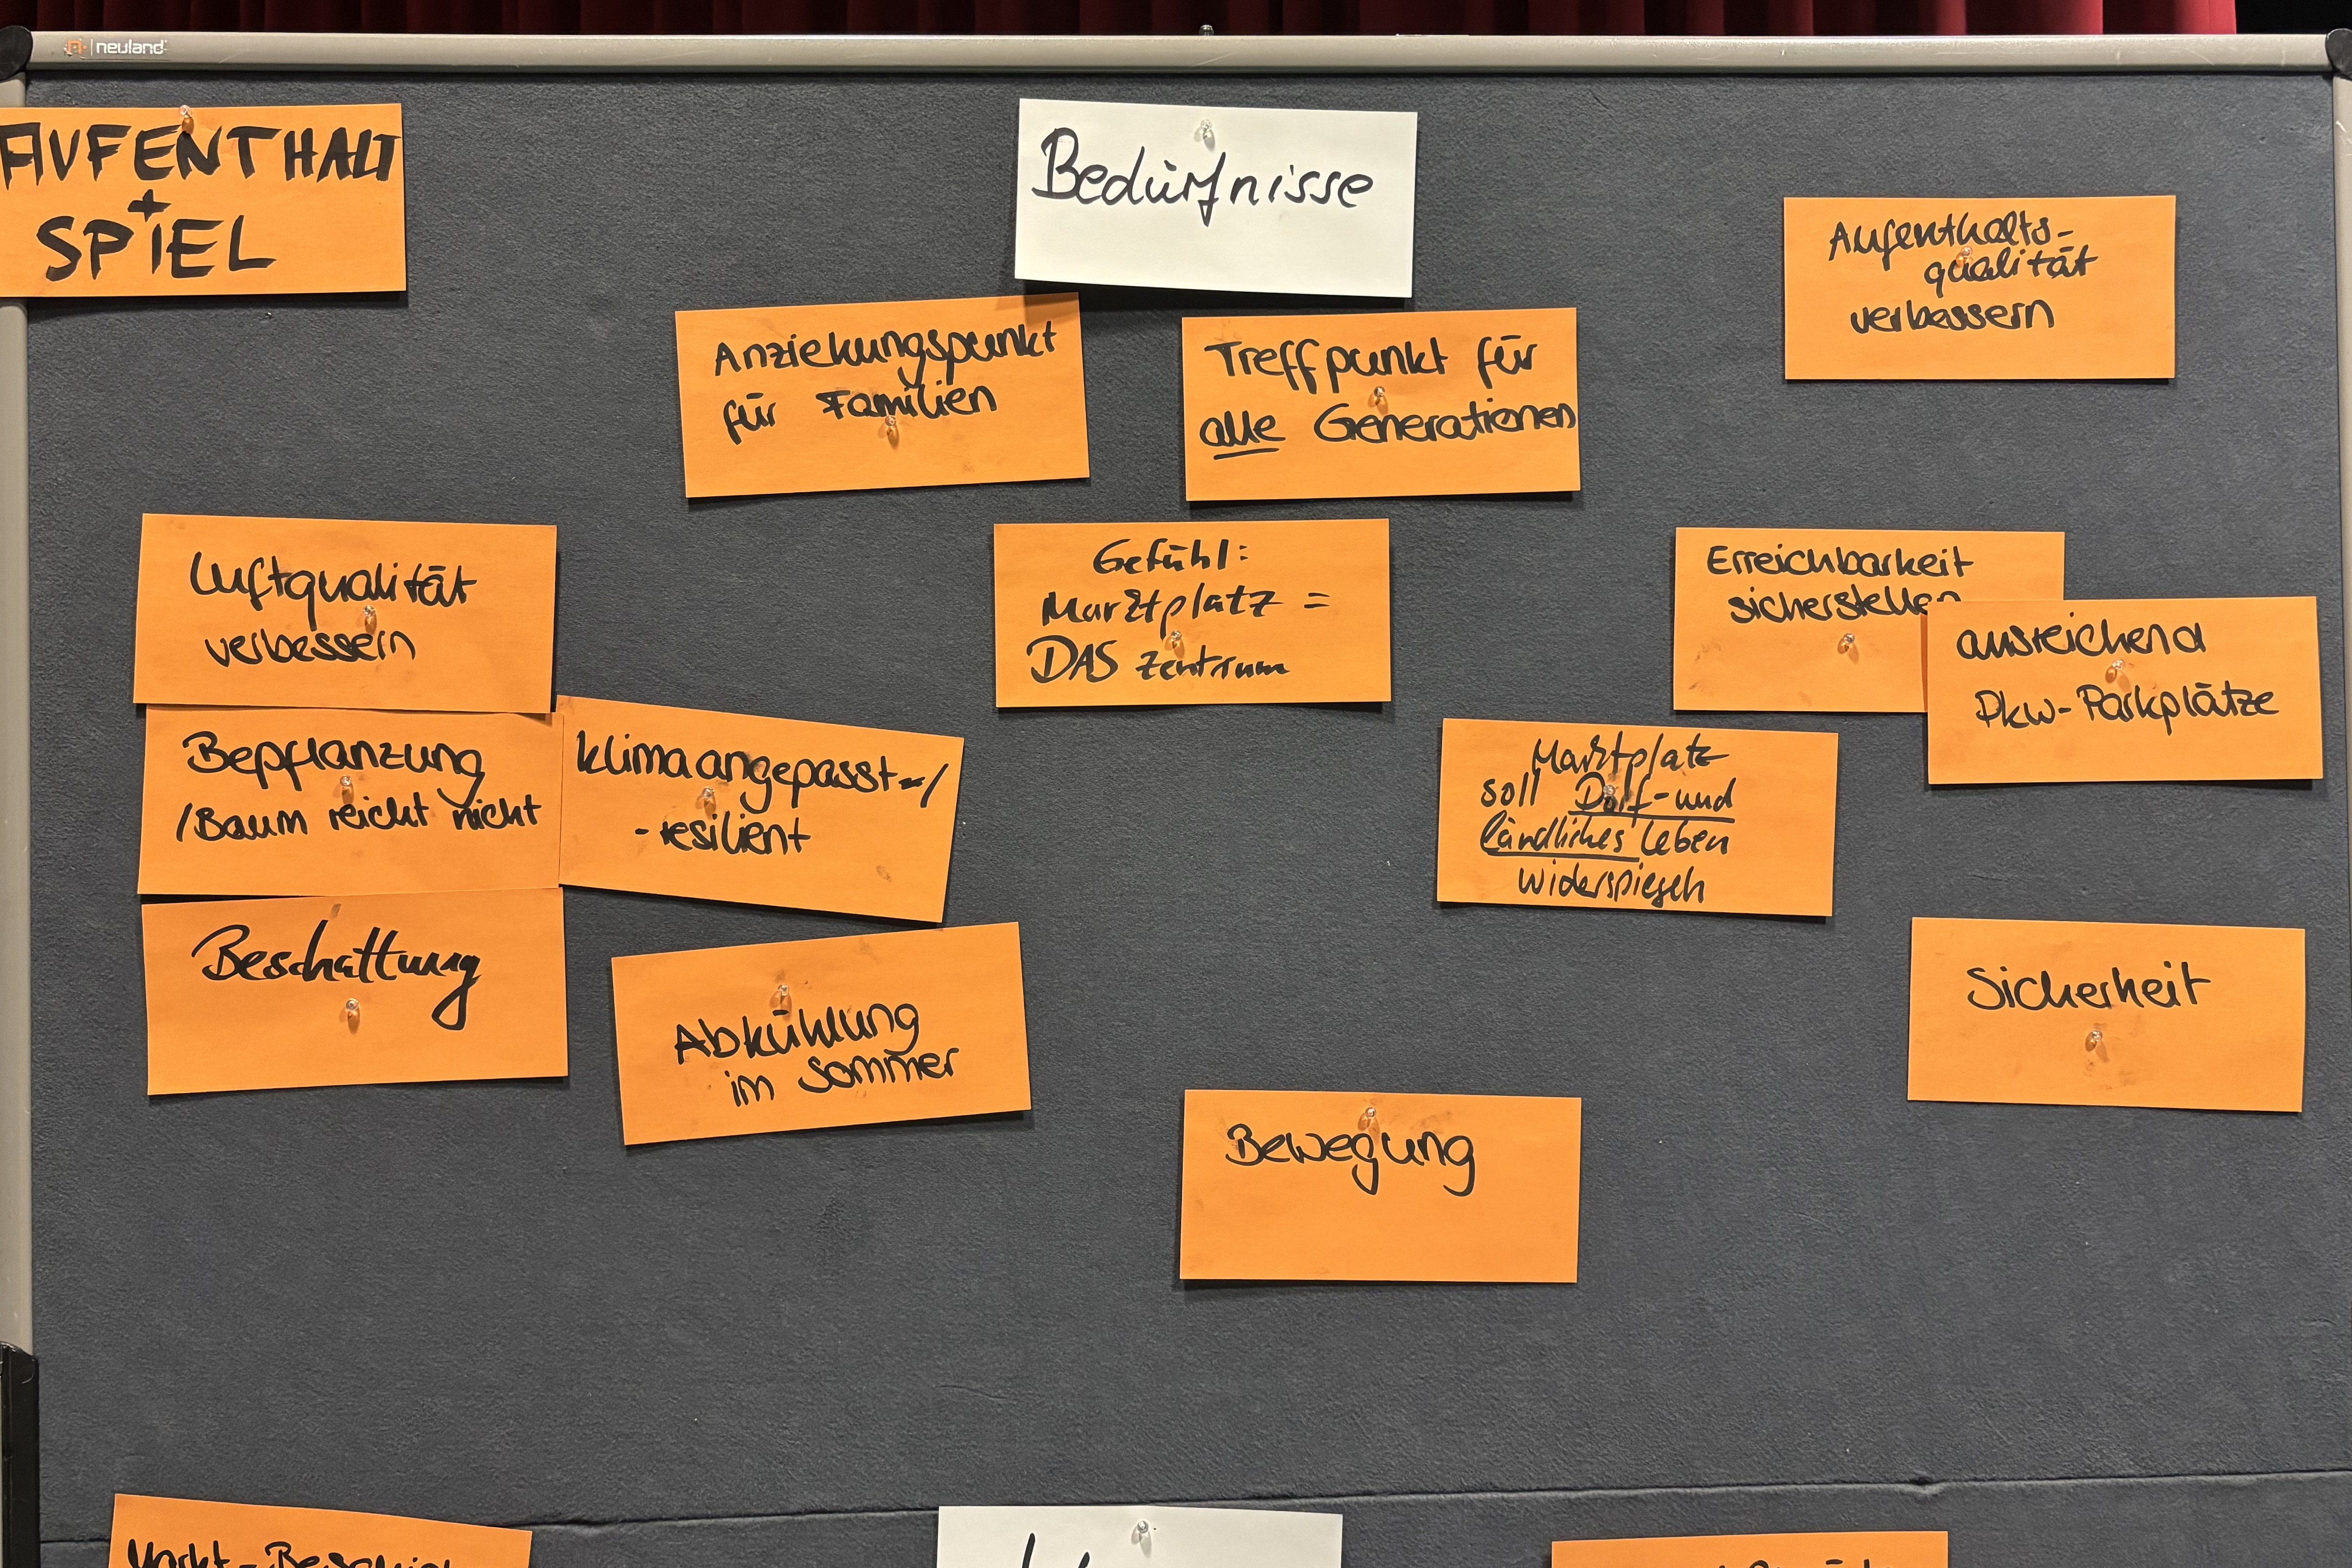 neuland
AUFENTHALT
+
SPIEL
Bedürfnisse
Aufenthalts-
qualität
verbessern
Anziehungspunkt
für Familien
Treffpunkt für
alle Generationen
Luftqualität
verbessern
Gefühl:
Marktplatz =
DAS Zentrum
Erreichbarkeit
sicherstellen
ausreichend
Pkw-Parkplätze
Bepflanzung
/Baum reicht nicht
klimaangepasst-/
-resilient
Marktplatz
soll Dorf-und
ländliches Leben
widerspiegeln
Beschattung
Abkühlung
im Sommer
Sicherheit
Bewegung
Markt-